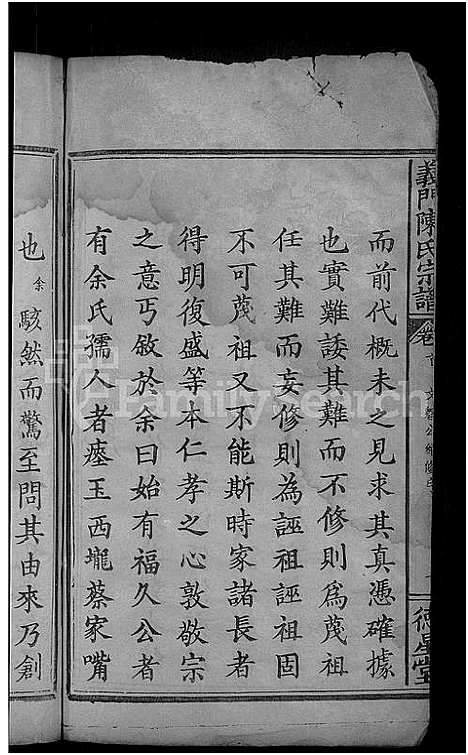 義門陳氏宗譜
卷首
德星堂
而前代概未之見求其真憑確據
也實難諉其難而不修則爲茂祖
任其難而妄修則為誣祖誣祖固
不可茂祖又不能斯時家諸長者
得明復盛等本仁孝之心敦敬宗
之意丐敘於余曰始有福久公者
有余氏孺人者瘞玉西壠蔡家嘴
也余駭然而驚至問其由來乃創
FamilySearch